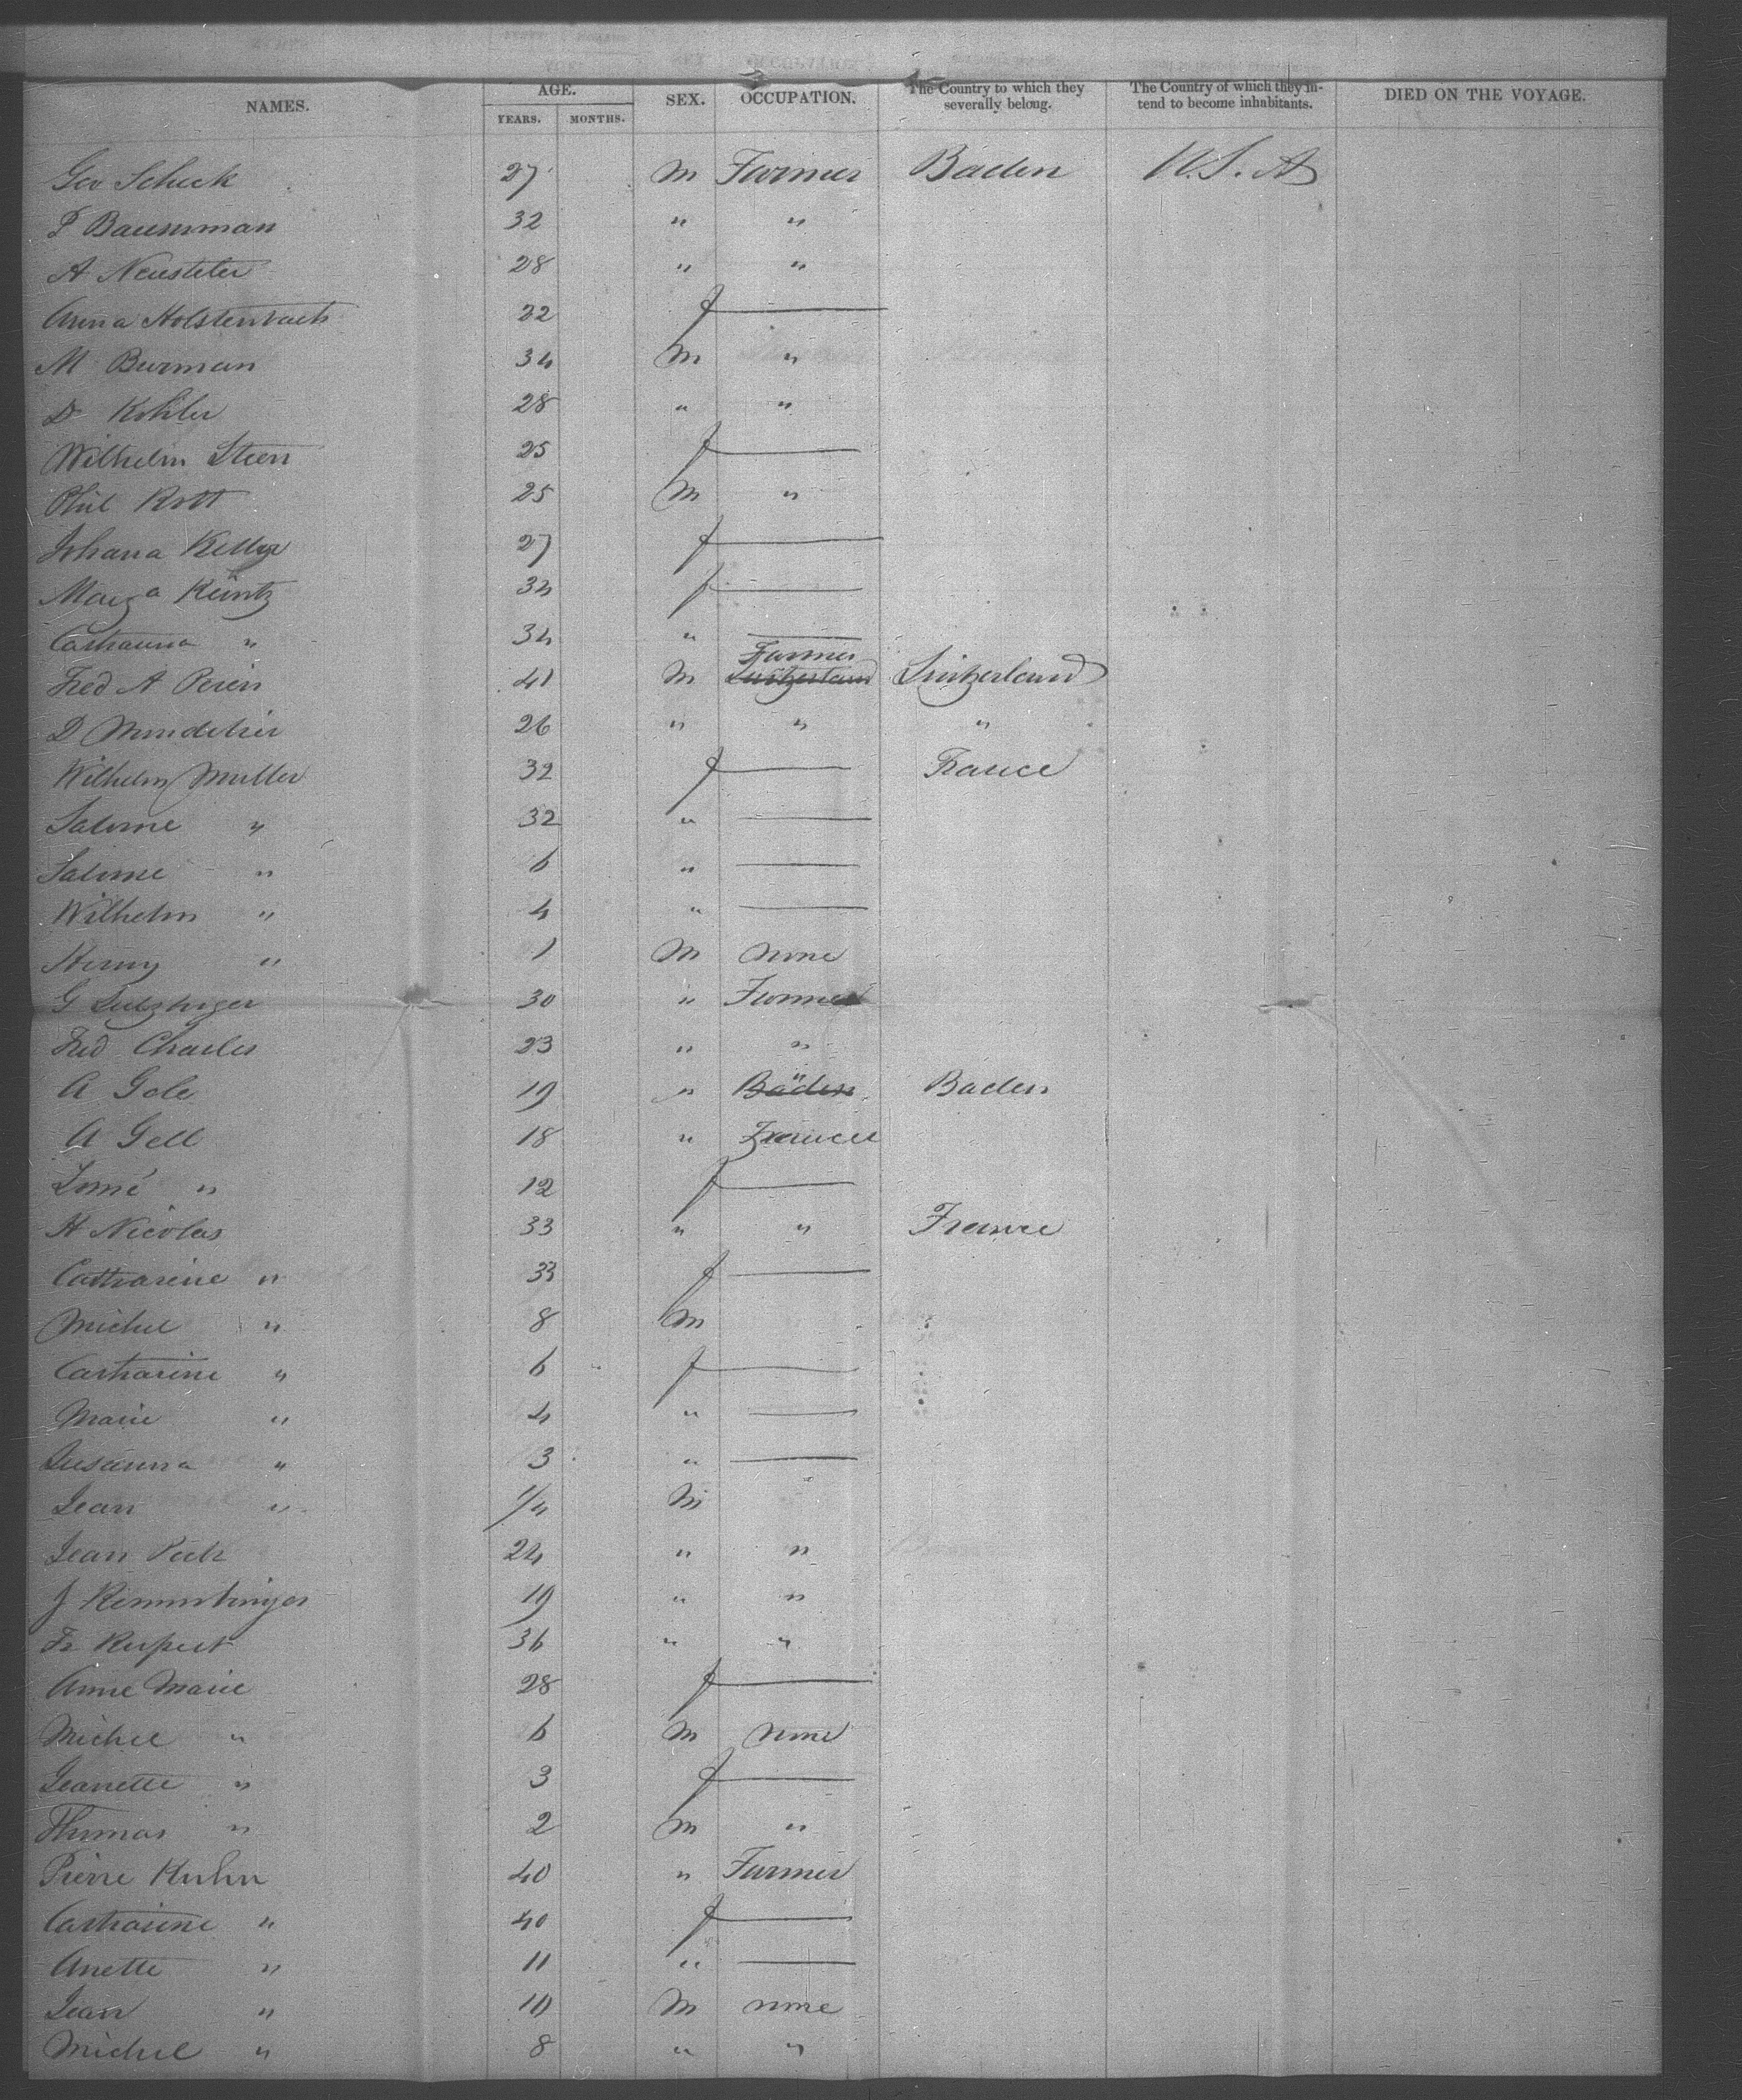 NAMES. AGE. YEARS. MONTHS. SEX. OCCUPATION. The Country to which they severally belong. The Country of which they intend to become inhabitants. DIED ON THE VOYAGE.
Geo Scheck 27 M Farmer Baden U.S.A
P Baumman 32 " "
A Neusteter 28 " "
Anna Holstenbach 22 f —
M Burman 34 M "
D Kohler 28 " "
Wilhelm Steen 25 f —
Phil Rott 25 M "
Johana Keller 27 f —
Marga Kuntz 34 f —
Catharina " 34 " —
Fred A Perin 41 M Farmer Switzerland Switzerland
D 26 " " "
Wilhelm Muller 32 f — France
Salome " 32 " —
Salome " 6 " —
Wilhelm " 4 " —
Henry " 1 M none
G 30 " Farmer
Fred Charles 23 " "
A Gole 19 " " Baden Baden
A Gell 18 " France
" 12 f —
H Nicolas 33 " " France
Catharine " 33 f —
Michel " 8 M
Catharine " 6 f —
Marie " 4 " —
Susanna " 3 " —
Jean " 1/4 M
Jean 24 " "
J 19 " "
Fr Rupert 36 " "
Anne Marie 28 f —
Michel " 6 M none
Jeanette " 3 f —
Thomas " 2 M "
Pierre Kuhn 40 " Farmer
Catharine " 40 f —
Anette " 11 " —
Jean " 10 M none
Michel " 8 " "